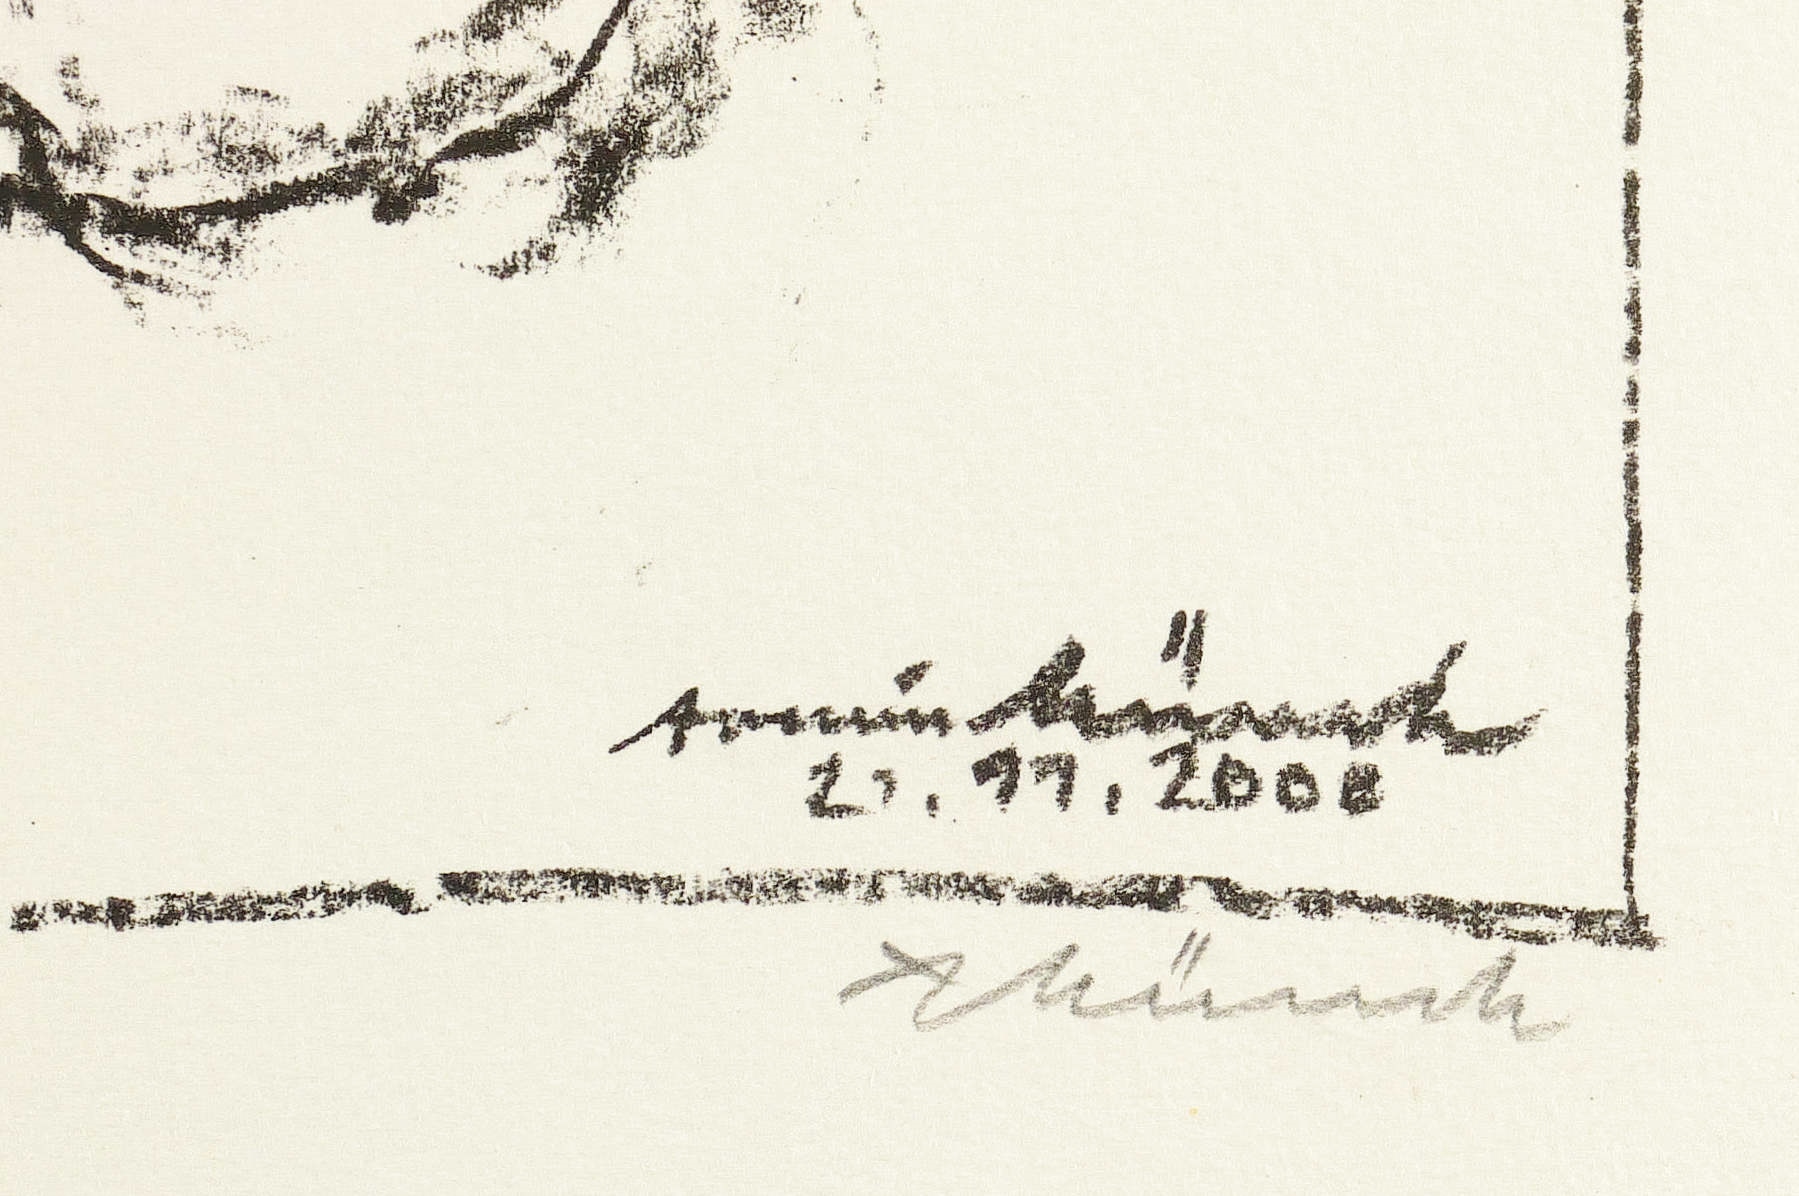 Armin Münch
21.11.2000
A Münch